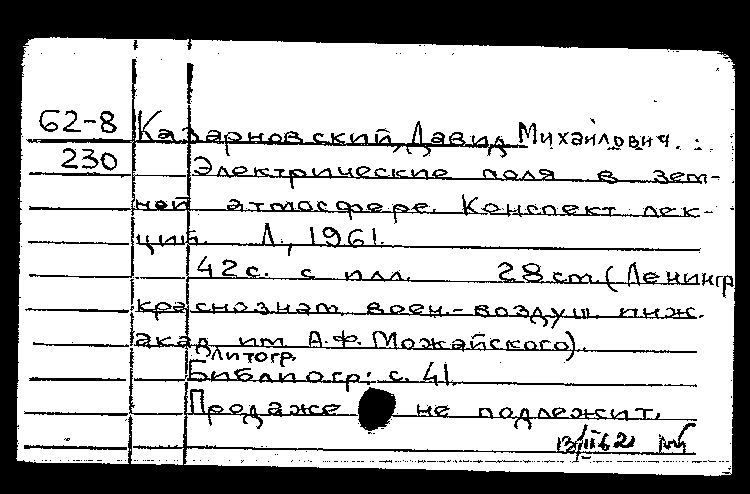 62-8 Казарновский, Давид Михайлович.
230 Электрические поля в зем-
ной атмосфере. Конспект лек-
ций. Л., 1961.
42 с. с илл. 28 см. (Ленингр
краснознам. воен.-воздуш. инж.
акад. им. А.Ф. Можайского).
Элитогр.
Библиогр: с. 41.
Продаже не подлежит.
13/III 62